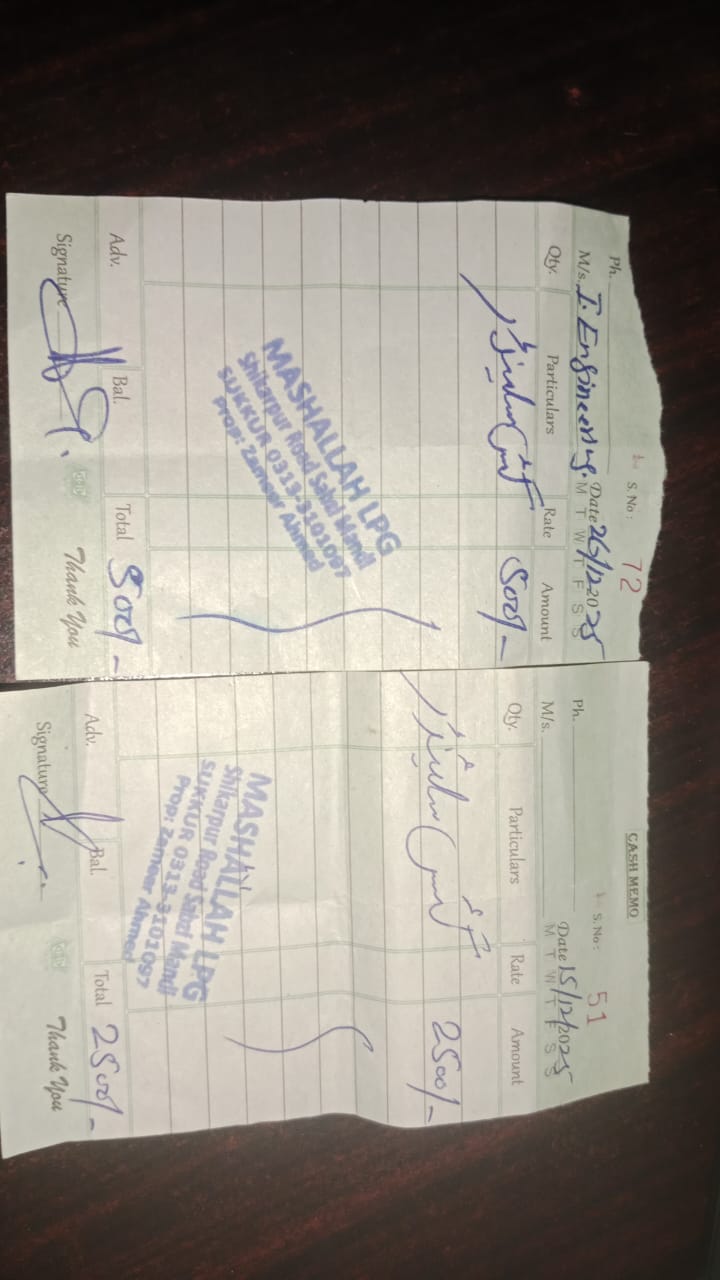 S. No: 72
Ph.
M/s. I. Engineering. Date 26/12/2025
M T W T F S S
Qty. Particulars Rate Amount
500/-
MASHALLAH LPG
Shikarpur Road Sabzi Mandi
SUKKUR 0313-3101097
Prop: Zameer Ahmed
Adv. Bal. Total 500/-
Signature Thank You
CASH MEMO
S. No: 51
Ph.
M/s. Date 15/12/2025
M T W T F S S
Qty. Particulars Rate Amount
2500/-
MASHALLAH LPG
Shikarpur Road Sabzi Mandi
SUKKUR 0313-3101097
Prop: Zameer Ahmed
Adv. Bal. Total 2500/-
Signature Thank You